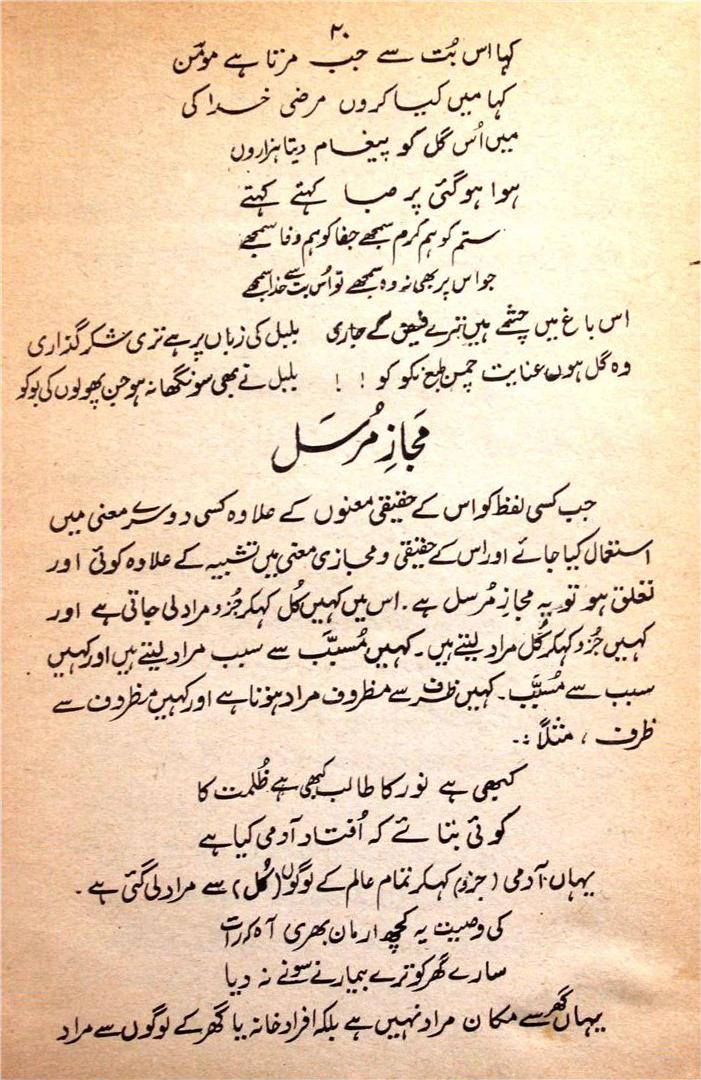 ۲۰
کہا اس بُت سے جب مرتا ہے مومنؔ
کہا میں کیا کروں مرضی خدا کی
میں اُس گل کو پیغام دیتا ہزاروں
ہوا ہو گئی پر صبا کہتے کہتے
ستم کو ہم کرم سمجھے جفا کو ہم وفا سمجھے
جو اس پر بھی نہ وہ سمجھے تو اُس بت سے خدا سمجھے
اس باغ میں چشمے ہیں ترے فیض کے جاری بلبل کی زباں پر ہے تری شکر گذاری
وہ گل ہوں عنایت چمن طبع نکو کو ! ! بلبل نے بھی سونگھا نہ ہو جن پھولوں کی بو کو
مَجازِ مُرسَل
جب کسی لفظ کو اس کے حقیقی معنوں کے علاوہ کسی دوسرے معنی میں
استعمال کیا جائے اور اس کے حقیقی و مجازی معنی میں تشبیہ کے علاوہ کوئی اور
تعلق ہو تو یہ مجازِ مُرسل ہے۔ اس میں کہیں کُل کہکر جُزو مراد لی جاتی ہے اور
کہیں جُزو کہکر کُل مراد لیتے ہیں۔ کہیں مُسبَّب سے سبب مراد لیتے ہیں اور کہیں
سبب سے مُسبَّب۔ کہیں ظرف سے مظروف مراد ہوتا ہے اور کہیں مظروف سے
ظرف ، مثلاً :۔
کبھی ہے نور کا طالب کبھی ہے ظُلمت کا
کوئی بتائے کہ اُفتاد آدمی کیا ہے
یہاں آدمی (جزو) کہکر تمام عالم کے لوگوں (کُل) سے مراد لی گئی ہے۔
کی وصیت یہ کچھ ارمان بھری آہ کہ رات
سارے گھر کو ترے بیمار نے سونے نہ دیا
یہاں گھر سے مکان مراد نہیں ہے بلکہ افراد خانہ یا گھر کے لوگوں سے مراد